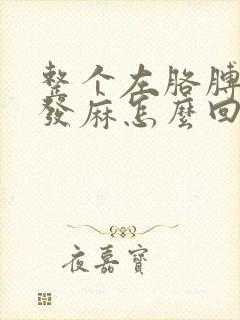 整个左胳膊
發麻怎麼回
夜嘉寶